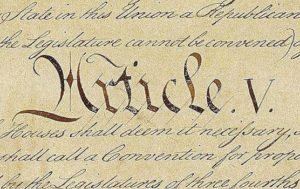 State in this Union a Republican
the Legislature cannot be convened)
Article. V.
Houses shall deem it necessary,
shall call a Convention for propo
by the Legislatures of three fourths